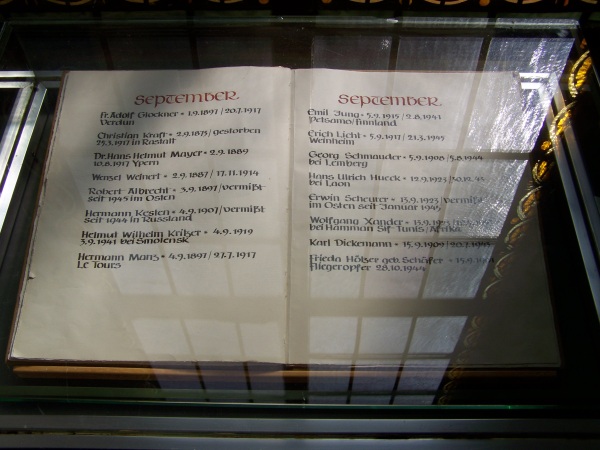 September
Fr. Adolf Glockner * 1.9.1897 / 20.7.1917
Verdun
Christian Kraft * 2.9.1875 / gestorben
25.3.1917 in Rastatt
Dr. Hans Helmut Mayer * 2.9.1889
10.8.1917 Ypern
Wenzel Weinert * 2.9.1887 / 17.11.1914
Robert Albrecht * 3.9.1897 / vermißt
seit 1945 im Osten
Hermann Kesten * 4.9.1907 / vermißt
seit 1944 in Russland
Helmut Wilhelm * 4.9.1919
3.9.1941 bei Smolensk
Hermann Mans * 4.9.1897 / 27.7.1917
Le Tours
September
Emil Jung * 5.9.1915 / 2.8.1941
Petsamo/Finnland
Erich Licht * 5.9.1917 / 21.3.1945
Weinheim
Georg Schmauder * 5.9.1908 / 5.8.1944
bei Lemberg
Hans Ulrich Hueck * 12.9.1923 /
bei Laon
Erwin Scheurer * 13.9.1923 / vermißt
im Osten seit Januar 1945
Wolfgang Xander
bei Hamman Sif Tunis/Afrika
Karl Dickemann * 15.9.1909 / 20.7.
Frieda Hölzer geb. Schäfer * 15.9.
Fliegeropfer 28.10.1944